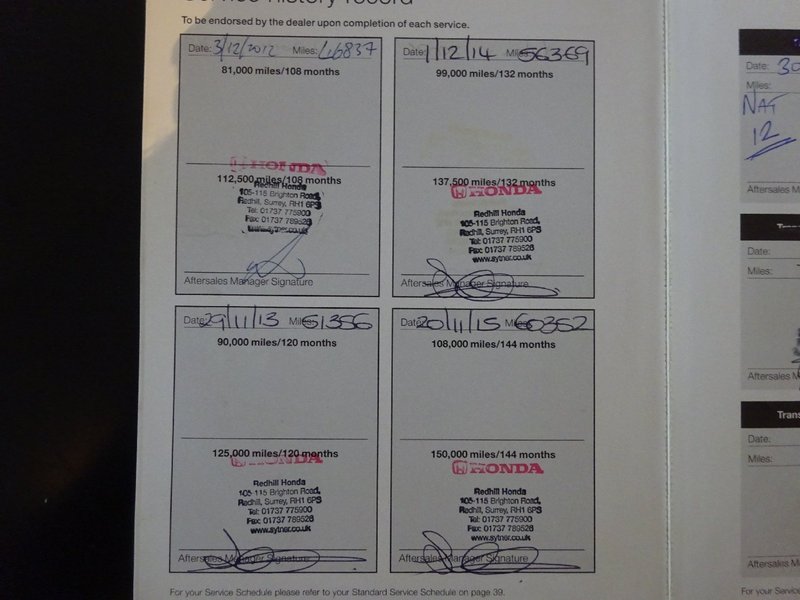 Service history record
To be endorsed by the dealer upon completion of each service.
Date: 3/12/2012 Miles: 46837
81,000 miles/108 months
HONDA
112,500 miles/108 months
Redhill Honda
105-115 Brighton Road,
Redhill, Surrey, RH1 6PS
Tel: 01737 775900
Fax: 01737 789526
Aftersales Manager Signature
Date: 1/12/14 Miles: 56369
99,000 miles/132 months
137,500 miles/132 months
HONDA
Redhill Honda
105-115 Brighton Road,
Redhill, Surrey, RH1 6PS
Tel: 01737 775900
Fax: 01737 789526
www.sytner.co.uk
Aftersales Manager Signature
Date: 29/11/13 Miles: 51356
90,000 miles/120 months
125,000 miles/120 months
HONDA
Redhill Honda
105-115 Brighton Road,
Redhill, Surrey, RH1 6PS
Tel: 01737 775900
Fax: 01737 789526
www.sytner.co.uk
Aftersales Manager Signature
Date: 20/11/15 Miles: 60352
108,000 miles/144 months
150,000 miles/144 months
HONDA
Redhill Honda
105-115 Brighton Road,
Redhill, Surrey, RH1 6PS
Tel: 01737 775900
Fax: 01737 789526
www.sytner.co.uk
Aftersales Manager Signature
For your Service Schedule please refer to your Standard Service Schedule on page 39.
Date: 30
Miles:
NAT
12
Aftersales Ma
Date:
Miles:
Aftersales M
Trans
Date:
Miles:
Aftersales Ma
For your Serv